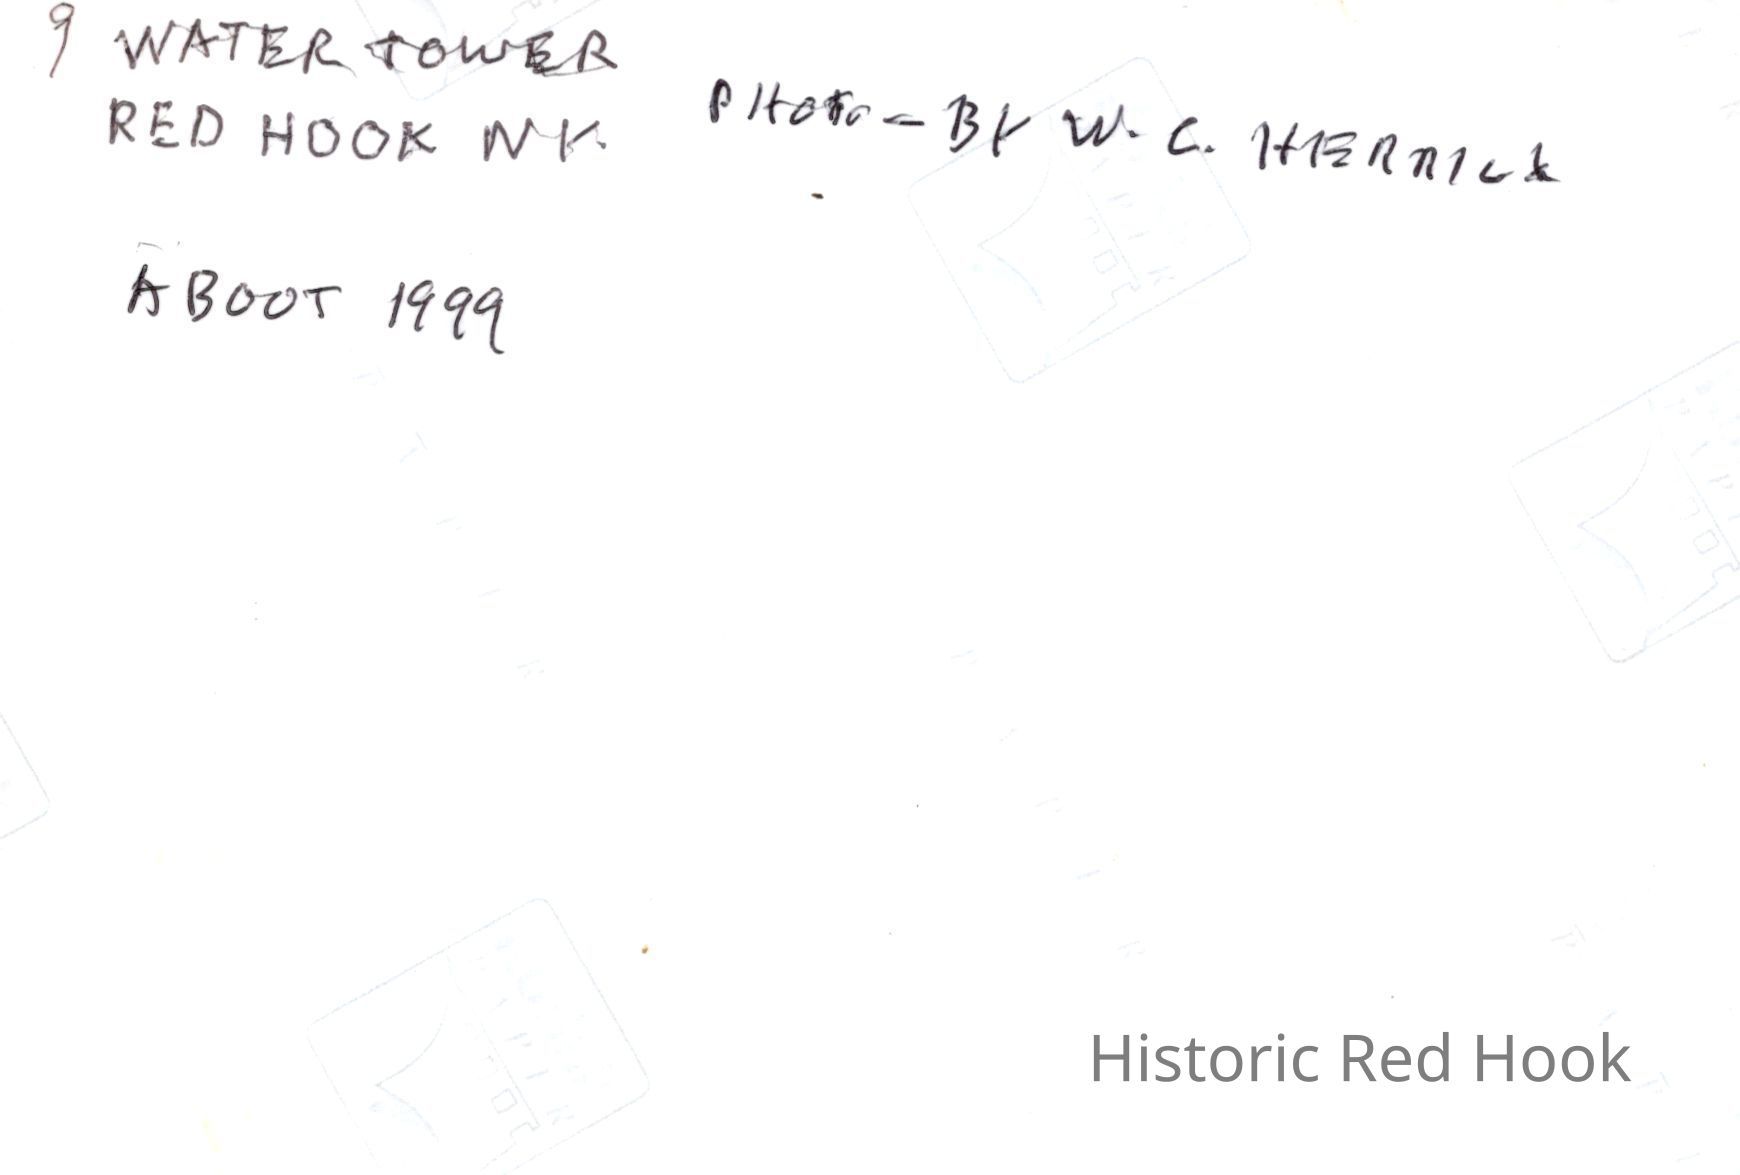 9 WATER TOWER
RED HOOK NY.
PHOTO - BY W. C. HERRICK
ABOOT 1999
Historic Red Hook